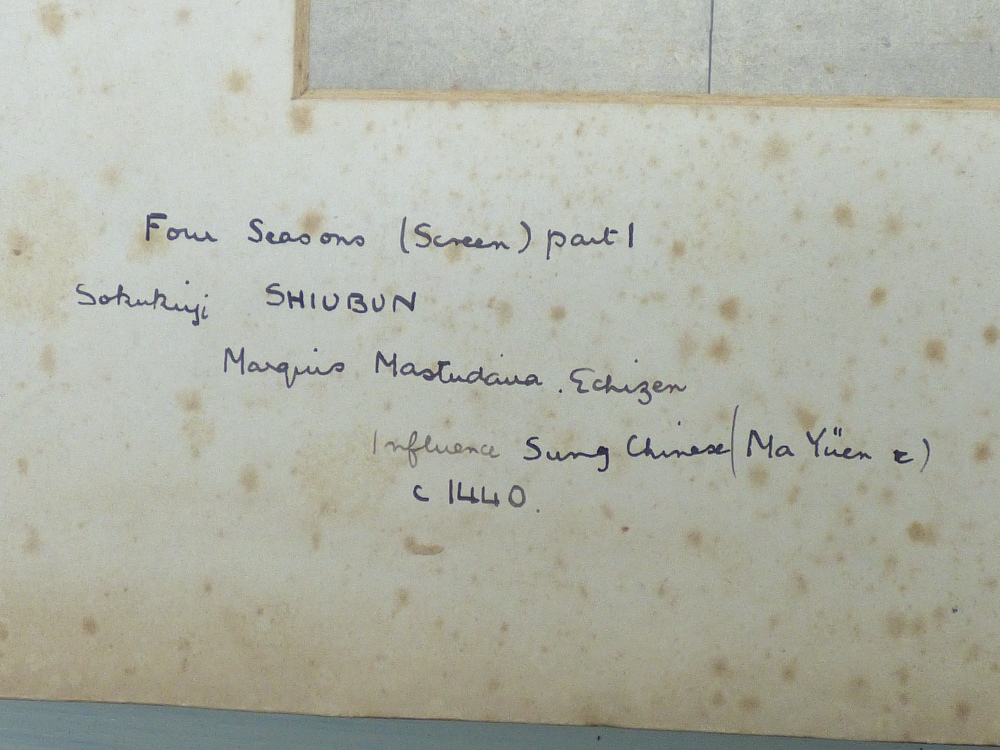 Four Seasons (Screen) part 1
Sokukuji SHIUBUN
Marquis Mastudaira . Echizen
Influence Sung Chinese (Ma Yüen)
c 1440.